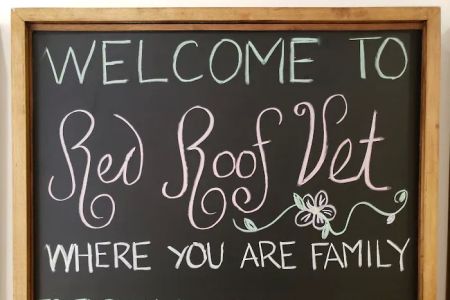 WELCOME TO
Red Roof Vet
WHERE YOU ARE FAMILY